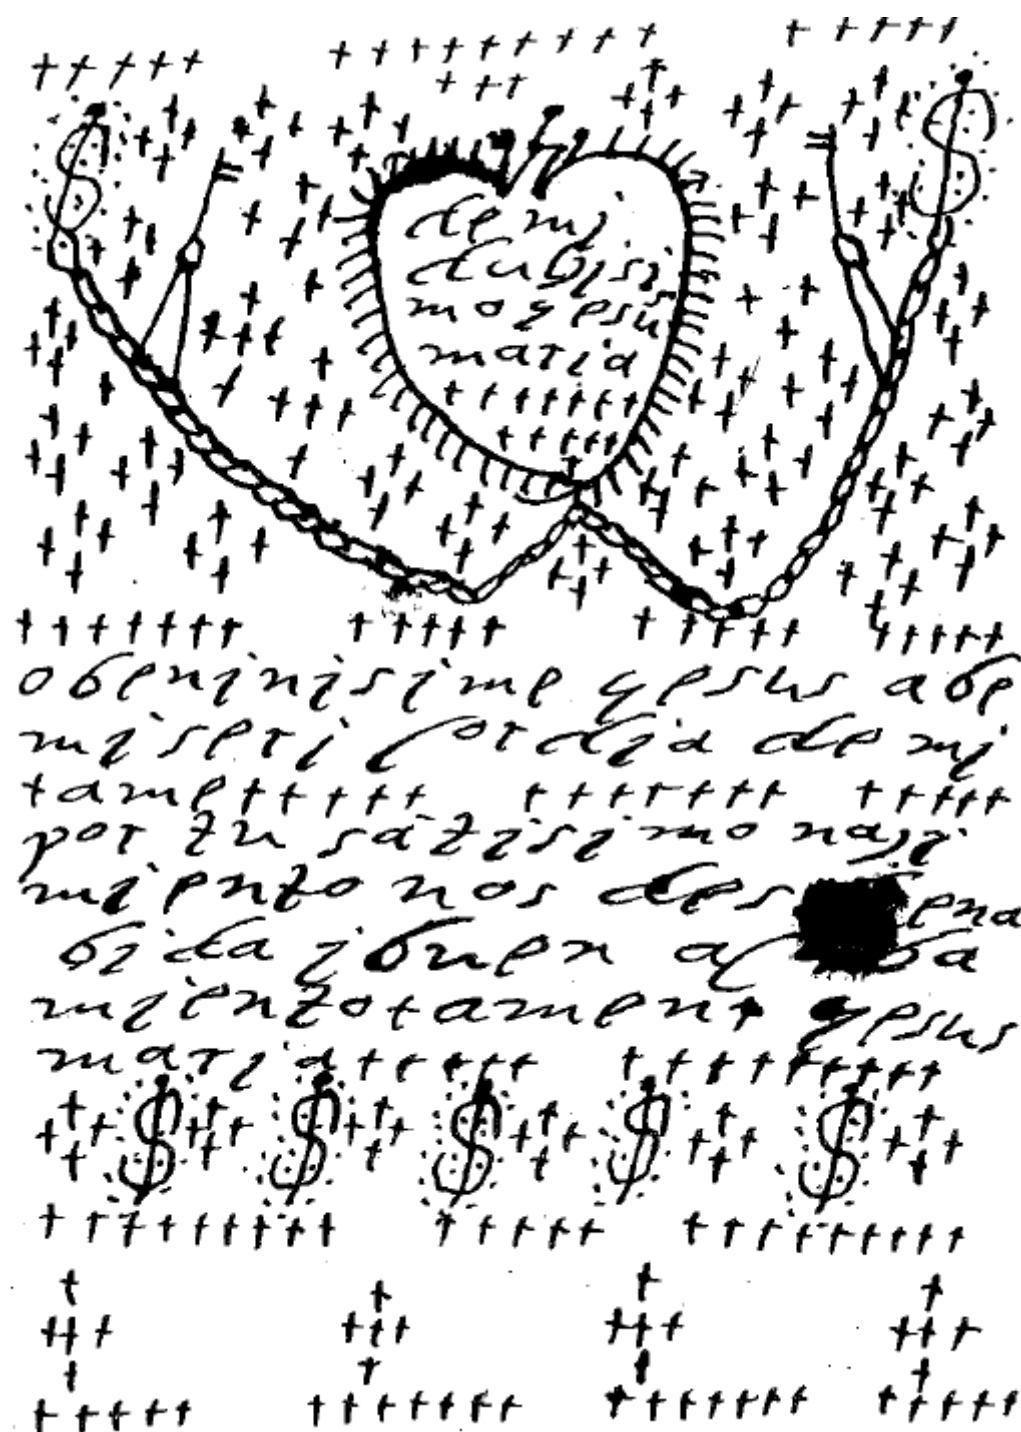 de mi
dulsisi
mo yesus
maria
+++++++
+++++
obeninisime yesus abe
misericordia de mi
tame+++++ +++++++ +++++
por tu sătisimo nasi
miento nos des ena
bida i buen aca ba
miento tament yesus
maria+++++ +++++++++